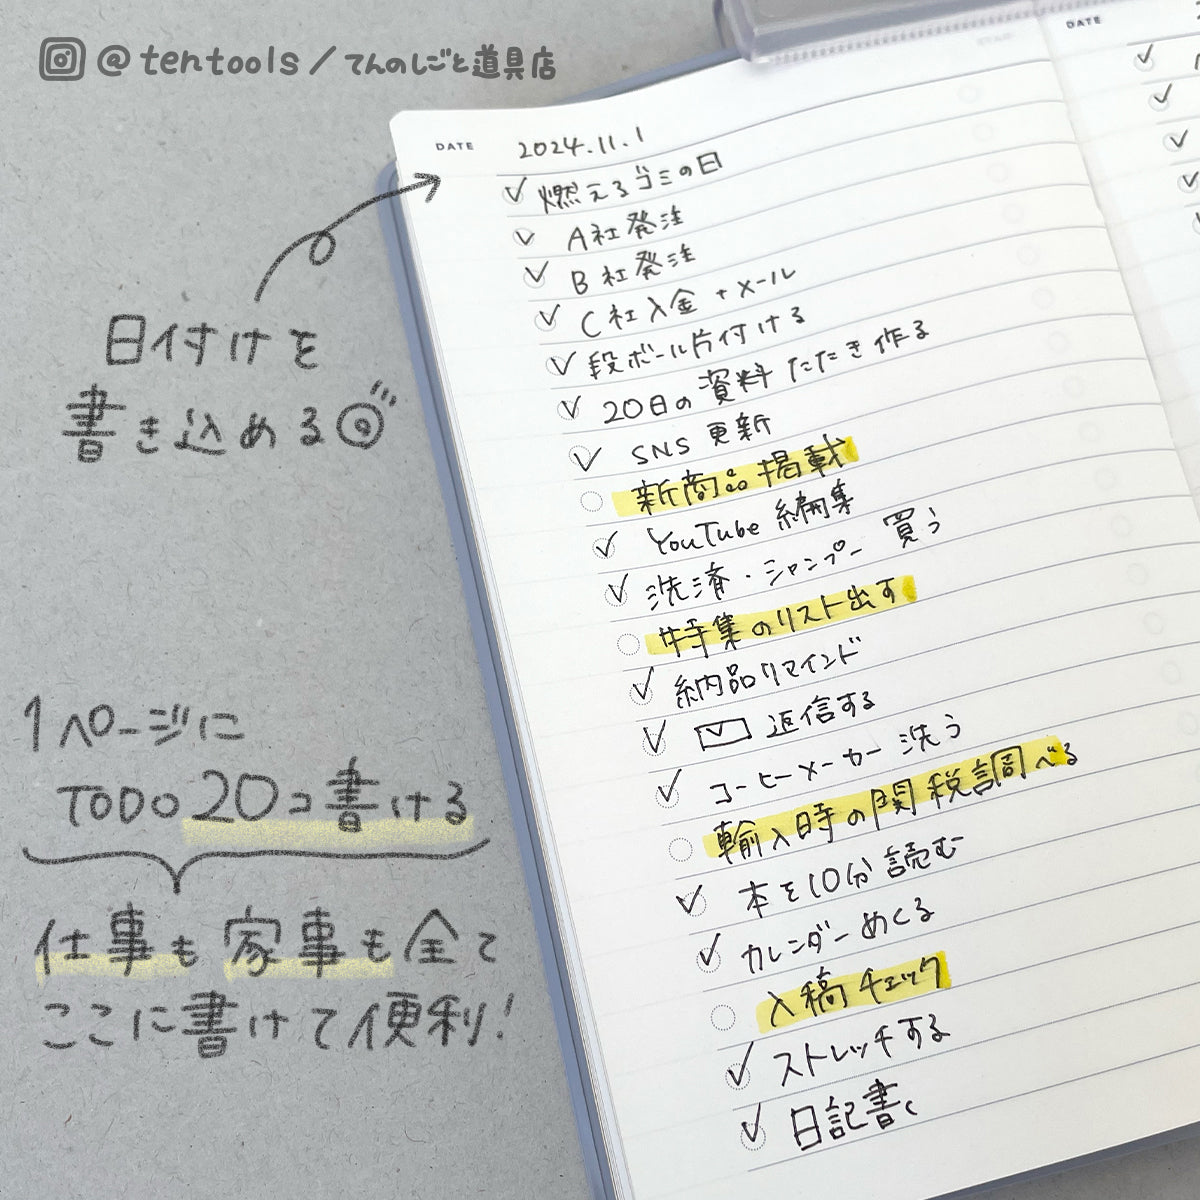 @tentools/てんのしごと道具店
DATE
2024.11.1
燃えるゴミの日
A社発注
B社発注
C社入金+メール
段ボール片付ける
20日の資料たたき作る
SNS更新
新商品掲載
YouTube編集
洗済・シャンプー買う
特集のリスト出す
納品リマインド
返信する
コーヒーメーカー洗う
輸入時の関税調べる
本を10分読む
カレンダーめくる
入稿チェック
ストレッチする
日記書く
DATE
日付けを
書き込める
1ページに
TODO20コ書ける
仕事も家事も全て
ここに書けて便利!